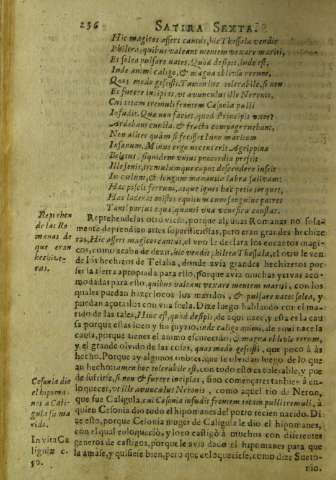 236 SATIRA SEXTA.
Hic magicos affert cantus, hic Thessala vendit
Philtra, quibus valeant mentem vexare mariti,
Et solea pulsare nates. Quòd desipis, inde est,
Inde animi caligo, & magna oblivio rerum,
Quas modo gessisti. Tamen hoc tolerabile, si non
Et furere incipias, ut avunculus ille Neronis,
Cui totam tremuli frontem Cæsonia pulli
Infudit. Quæ non faciet quod Principis uxor?
Ardebant cuncta, & fracta compage ruebant,
Non aliter quàm si fecisset Iuno maritum
Insanum. Minus ergo nocens erit Agrippinæ
Boletus, siquidem unius præcordia pressit
Ille senis, tremulumque caput descendere iussit
In cœlum, & longam manantia labra salivam:
Hæc poscit ferrum, atque ignes hæc potio torquet,
Hæc lacerat mistos equitum cum sanguine patres
Tanti partus equæ, quanti una venefica constat.
Reprehen
de las Ro
manas de
que eran
hechize-
ras.
Reprehende las otro vicio, porque algunas Romanas no sola-
mente deprendian artes supersticiosas, pero eran grandes hechize
ras, Hic magicos cantus, el vno le declara los encantos magi-
cos, como acaba de dezir, hic vendit philtra Thessala, el otro le ven-
de los hechizos de Tesalia, donde avia grandes hechizeros por
ser la tierra apropiada para ello, porque avia muchas yervas aco-
modadas para esto, quibus valeant vexare mentem mariti, con los
quales puedan hazer locos los maridos, & pulsare nates solea, y
puedan açotarlos con vna suela. Dize luego hablando con el ma-
rido de las tales, Hinc est, quòd desipis, de aqui nace, y esta es la cau
sa porque estas loco y sin juyzio, inde caligo animi, de aqui nace la
caligo, porque tienes el animo escurecido, & magna oblivio rerum,
y el grande olvido de las cosas, quas modo gessisti, que poco à as
hecho. Porque ay algunos que se le olvidan luego de lo que
an hecho, tamen hoc tolerabile est, con todo esto es tolerable, y pue
de sufrirse, si non & furere incipias, sino començares tambien à en-
loquecer, ut ille avunculus Neronis, como aquel tio de Neron,
que fue Caligula, cui Cæsonia infudit frontem totam pulli tremuli, à
quien Cesonia dio todo el hipomanes del potro recien nacido. Di-
ze esto, porque Cesonia muger de Caligula le dio el hipomanes,
con el qual enloqueciò, y loco castigò à muchos con diferentes
generos de castigos, porque le avia dado el hipomanes para que
la amase, y quisiese bien, pero enloqueciose, como dize Sueto-
nio
Cesonia dio
el hipoma-
nes a Cali-
gula su ma
rido.
In vita Ca
ligulæ c.
50.